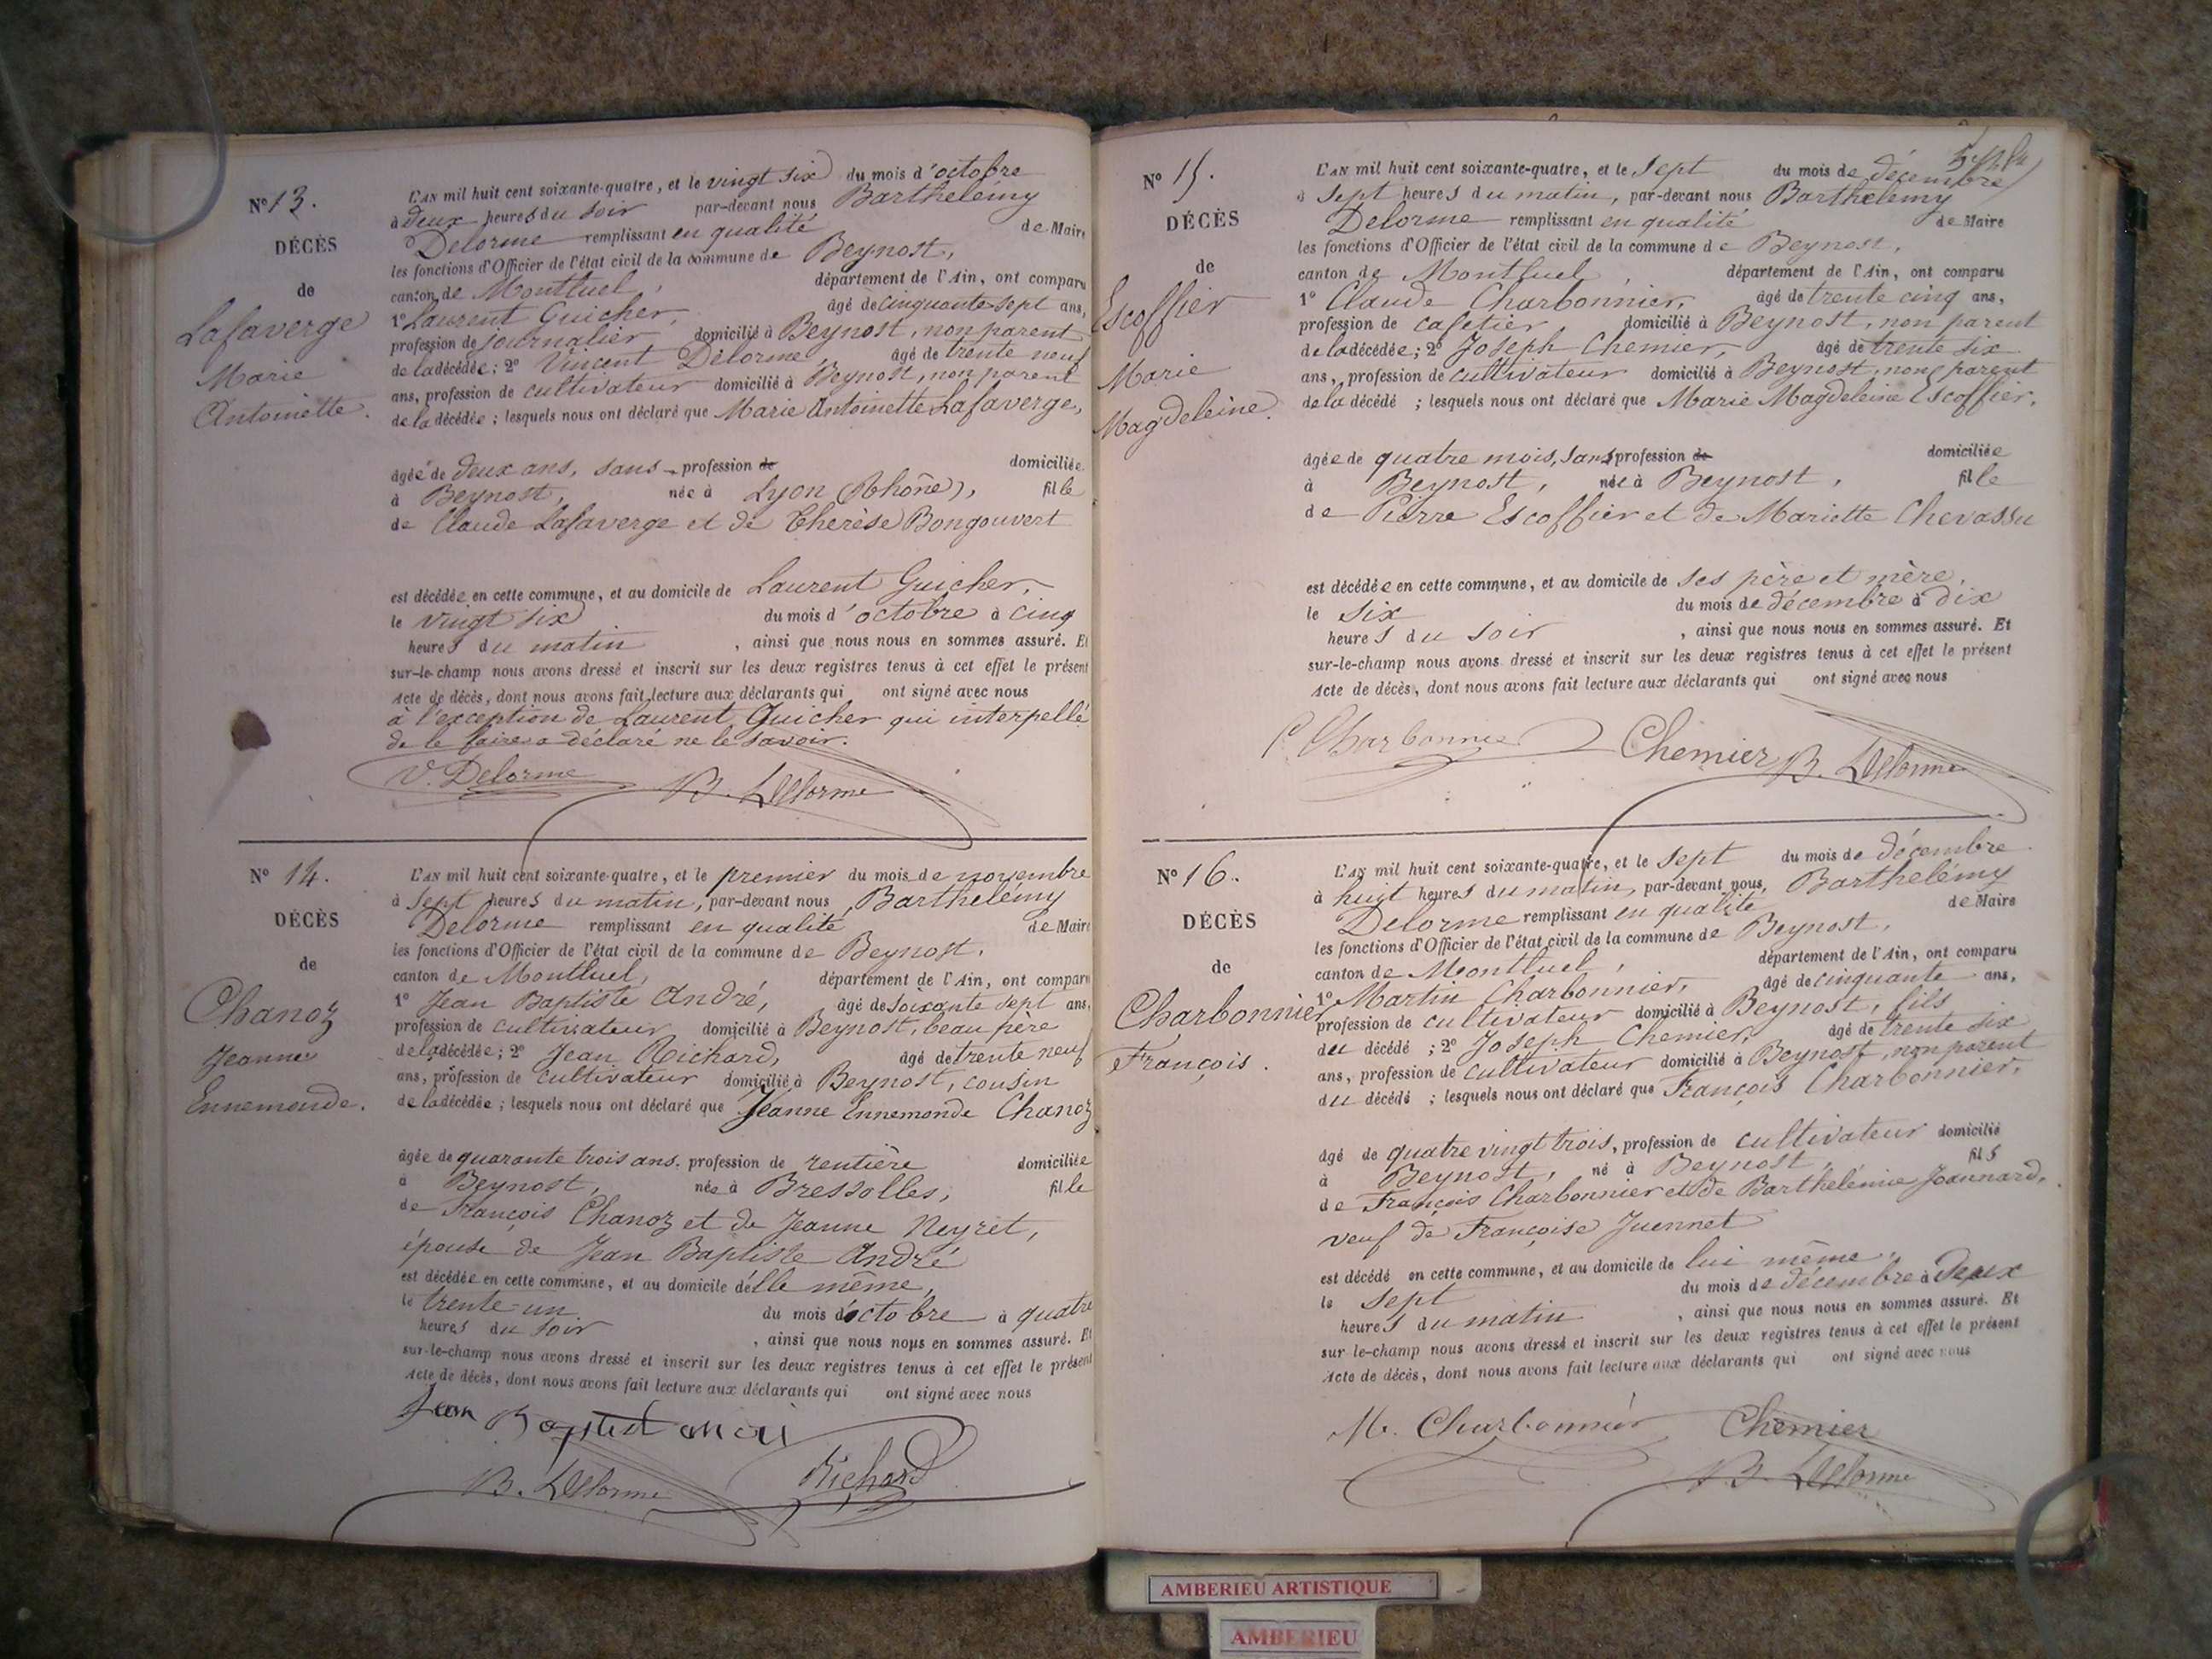 N° 13.
DÉCÈS
de
Lafaverge
Marie
Antoinette.
L'AN mil huit cent soixante-quatre, et le vingt six du mois d'octobre
à deux heures du soir par-devant nous Barthelémy
Delorme remplissant en qualité de Maire
les fonctions d'Officier de l'état civil de la commune de Beynost,
canton de Montluel, département de l'Ain, ont comparu
1° Laurent Guicher, âgé de cinquante sept ans,
profession de journalier domicilié à Beynost, non parent
de la décédée; 2° Vincent Delorme âgé de trente neuf
ans, profession de cultivateur domicilié à Beynost, non parent
de la décédée; lesquels nous ont déclaré que Marie Antoinette Lafaverge,
âgée de deux ans, sans profession de domiciliée
à Beynost, née à Lyon (Rhône), fille
de Claude Lafaverge et de Therèse Bongouvert
est décédée en cette commune, et au domicile de Laurent Guicher,
le vingt six du mois d'octobre à cinq
heures du matin, ainsi que nous nous en sommes assuré. Et
sur-le-champ nous avons dressé et inscrit sur les deux registres tenus à cet effet le présent
acte de décès, dont nous avons fait lecture aux déclarants qui ont signé avec nous
à l'exception de Laurent Guicher qui interpellé
de le faire a déclaré ne le savoir.
V. Delorme B. Delorme
N° 14.
DÉCÈS
de
Chanoz
Jeanne
Ennemonde.
L'AN mil huit cent soixante-quatre, et le premier du mois de novembre
à sept heures du matin, par-devant nous Barthelémy
Delorme remplissant en qualité de Maire
les fonctions d'Officier de l'état civil de la commune de Beynost,
canton de Montluel, département de l'Ain, ont comparu
1° Jean Baptiste André, âgé de soixante sept ans,
profession de cultivateur domicilié à Beynost, beau père
de la décédée; 2° Jean Richard, âgé de trente neuf
ans, profession de cultivateur domicilié à Beynost, cousin
de la décédée; lesquels nous ont déclaré que Jeanne Ennemonde Chanoz
âgée de quarante trois ans, profession de rentière domiciliée
à Beynost, née à Bressolles, fille
de François Chanoz et de Jeanne Neyret,
épouse de Jean Baptiste André
est décédée en cette commune, et au domicile d'elle même,
le trente-un du mois d'octobre à quatre
heures du soir, ainsi que nous nous en sommes assuré. Et
sur-le-champ nous avons dressé et inscrit sur les deux registres tenus à cet effet le présent
acte de décès, dont nous avons fait lecture aux déclarants qui ont signé avec nous
Jean Baptist
B. Delorme Richard
N° 15.
DÉCÈS
de
Escoffier
Marie
Magdeleine.
L'AN mil huit cent soixante-quatre, et le sept du mois de décembre
à sept heures du matin, par-devant nous Barthelemy
Delorme remplissant en qualité de Maire
les fonctions d'Officier de l'état civil de la commune de Beynost,
canton de Montluel, département de l'Ain, ont comparu
1° Claude Charbonnier, âgé de trente cinq ans,
profession de cafetier domicilié à Beynost, non parent
de la décédée; 2° Joseph Chemier, âgé de trente six
ans, profession de cultivateur domicilié à Beynost, non parent
de la décédé; lesquels nous ont déclaré que Marie Magdeleine Escoffier,
âgée de quatre mois, sans profession de domiciliée
à Beynost, née à Beynost, fille
de Pierre Escoffier et de Mariette Chevassu
est décédée en cette commune, et au domicile de ses père et mère,
le six du mois de décembre à dix
heures du soir, ainsi que nous nous en sommes assuré. Et
sur-le-champ nous avons dressé et inscrit sur les deux registres tenus à cet effet le présent
acte de décès, dont nous avons fait lecture aux déclarants qui ont signé avec nous
C Charbonnier Chemier B. Delorme
N° 16.
DÉCÈS
de
Charbonnier
François.
L'AN mil huit cent soixante-quatre, et le sept du mois de décembre
à huit heures du matin, par-devant nous, Barthelémy
Delorme remplissant en qualité de Maire
les fonctions d'Officier de l'état civil de la commune de Beynost,
canton de Montluel, département de l'Ain, ont comparu
1° Martin Charbonnier, âgé de cinquante ans,
profession de cultivateur domicilié à Beynost, fils
du décédé; 2° Joseph Chemier, âgé de trente six
ans, profession de cultivateur domicilié à Beynost, non parent
du décédé; lesquels nous ont déclaré que François Charbonnier,
âgé de quatre vingt trois, profession de cultivateur domicilié
à Beynost, né à Beynost, fils
de François Charbonnier et de Barthelémie Joannard,
veuf de Françoise Juennet
est décédé en cette commune, et au domicile de lui même,
le sept du mois de décembre à deux
heures du matin, ainsi que nous nous en sommes assuré. Et
sur-le-champ nous avons dressé et inscrit sur les deux registres tenus à cet effet le présent
acte de décès, dont nous avons fait lecture aux déclarants qui ont signé avec nous
M. Charbonnier Chemier
B. Delorme
AMBERIEU ARTISTIQUE
AMBERIEU